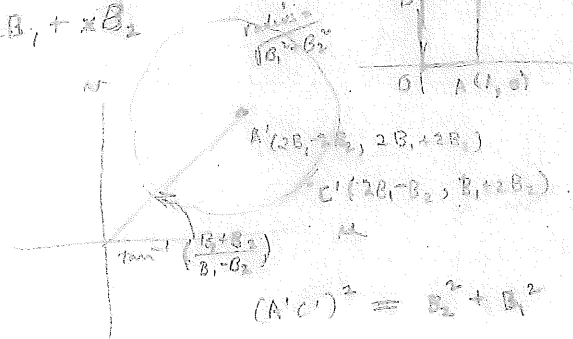 B₁ + xB₂
radius
√B₁² + B₂²
B
O A(1, 0)
v
A'(2B₁-2B₂, 2B₁+2B₂)
C'(2B₁-B₂, B₁+2B₂)
u
tan⁻¹(B₁+B₂/B₁-B₂)
(A'C')² = B₂² + B₁²